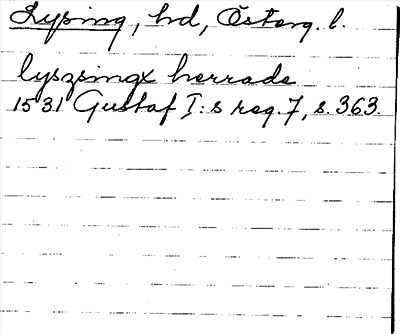 Lysing, hd, Österg. l.
lyszsingx herrade
1531 Gustaf I:s reg. 7, s. 363.